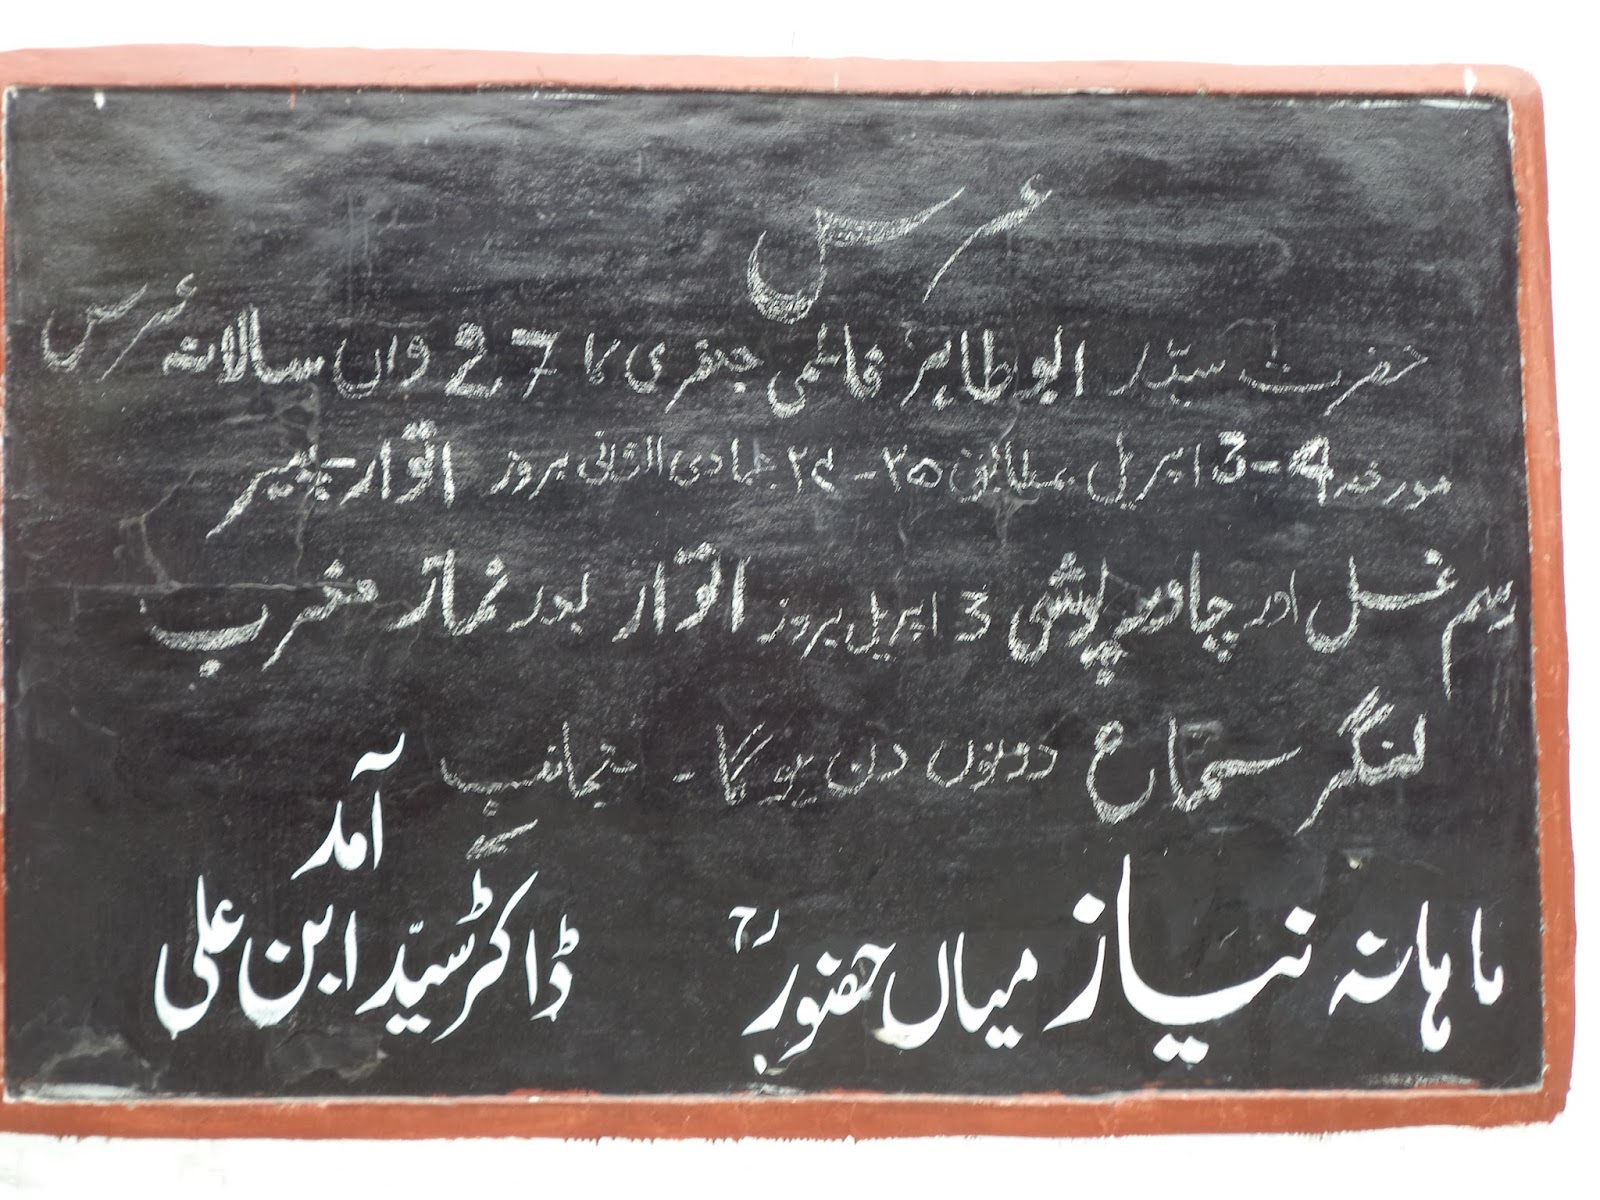 عرس
حضرت سید ابو طاہر فاطمی جعفری کا 7 واں سالانہ عرس
مورخہ 4-3 اپریل بمطابق ۲۵-۲٤ جمادی الثانی بروز اتوار-پیر
رسم غسل اور چادر پوشی 3 اپریل بروز اتوار بعد نماز مغرب
لنگر سماع دونوں دن ہوگا - منجانب
آمد
ماہانہ نیاز میاں حضورؒ ڈاکٹر سیّد ابن علی